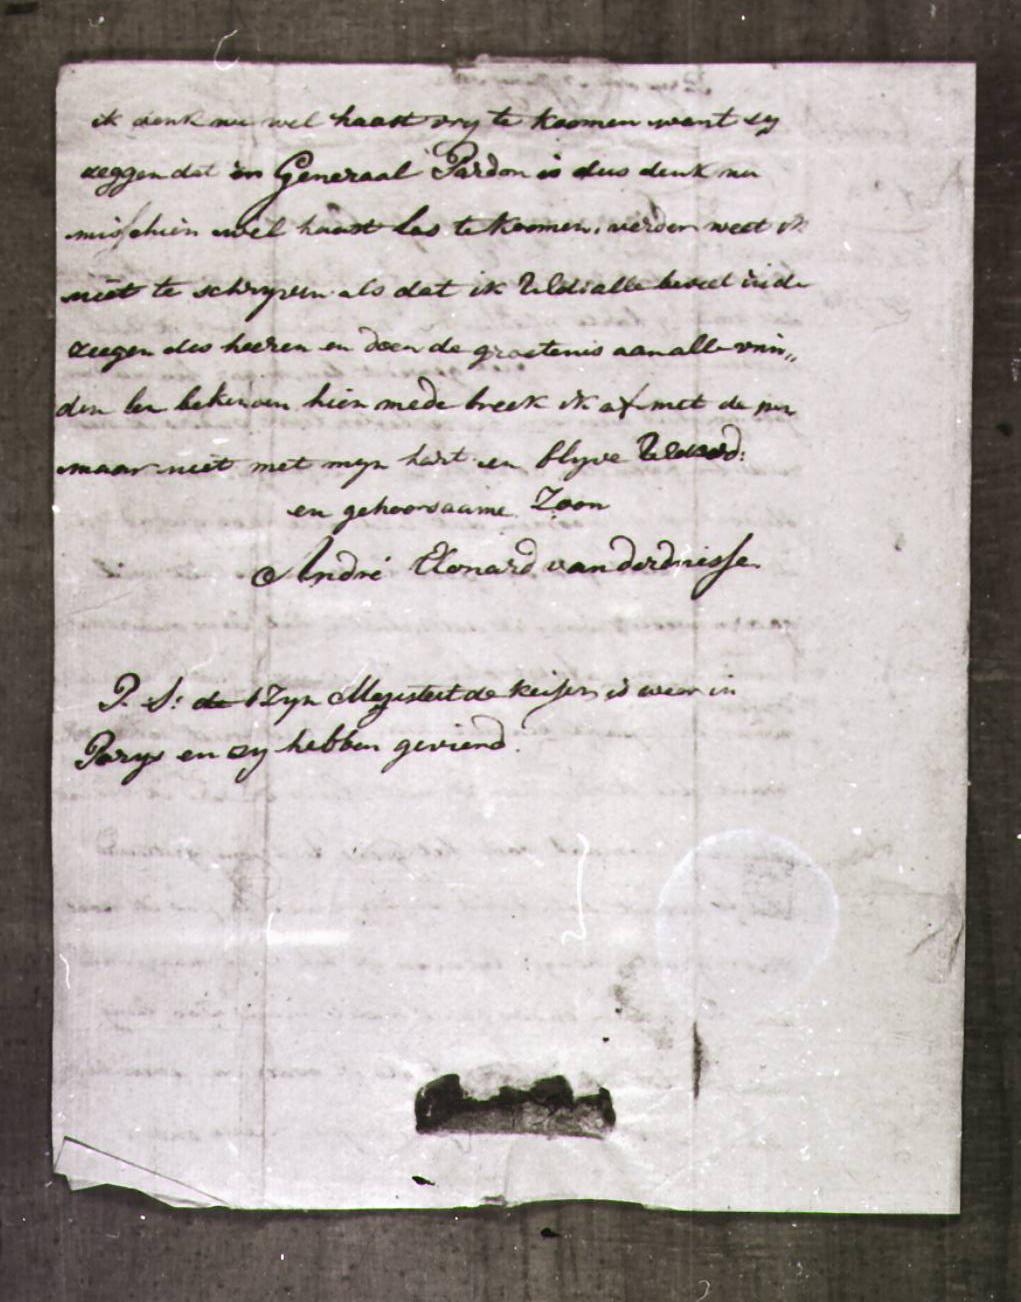 ik denk nu wel haast vry te koomen want zy
zeggen dat en Generaal Pardon is dus denk nu
misschien wel haast los te koomen, verder weet ik
niet te schryven als dat ik alle beveel in de
zeegen des heeren en doen de groetenis aan alle vrin„
den en bekenden hier mede breek ik af met de pen
maar niet met myn hart en blyve
en gehoorsaame Zoon
André van der
P. S: Zyn Majesteit de keiser is weer in
Parys en zy hebben gevierd.